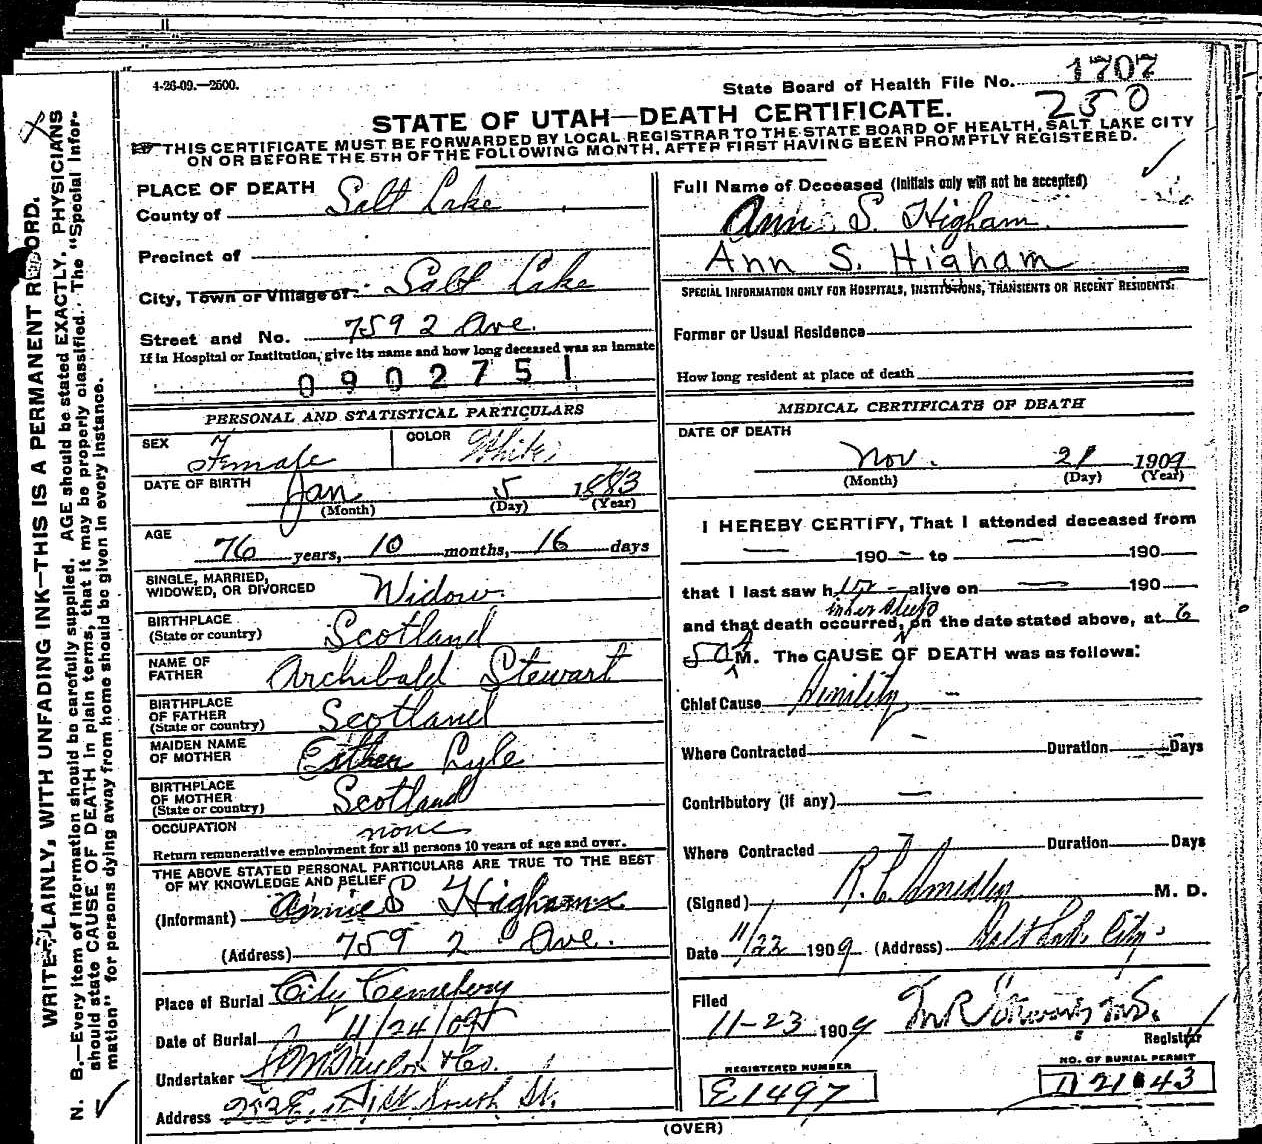 4-26-09.—2500.
State Board of Health File No. 1707
250
STATE OF UTAH—DEATH CERTIFICATE.
THIS CERTIFICATE MUST BE FORWARDED BY LOCAL REGISTRAR TO THE STATE BOARD OF HEALTH, SALT LAKE CITY
ON OR BEFORE THE 5TH OF THE FOLLOWING MONTH, AFTER FIRST HAVING BEEN PROMPTLY REGISTERED.
WRITE PLAINLY, WITH UNFADING INK—THIS IS A PERMANENT RECORD.
N. B.—Every item of information should be carefully supplied. AGE should be stated EXACTLY. PHYSICIANS
should state CAUSE OF DEATH in plain terms, that it may be properly classified. The "Special Infor-
mation" for persons dying away from home should be given in every instance.
PLACE OF DEATH
County of Salt Lake
Precinct of
City, Town or Village of Salt Lake
Street and No. 759 2 Ave.
If in Hospital or Institution, give its name and how long deceased was an inmate
0902751
PERSONAL AND STATISTICAL PARTICULARS
SEX Female COLOR White
DATE OF BIRTH Jan 5 1883
(Month) (Day) (Year)
AGE 76 years, 10 months, 16 days
SINGLE, MARRIED,
WIDOWED, OR DIVORCED Widow
BIRTHPLACE
(State or country) Scotland
NAME OF
FATHER Archibald Stewart
BIRTHPLACE
OF FATHER
(State or country) Scotland
MAIDEN NAME
OF MOTHER Esther Lyle
BIRTHPLACE
OF MOTHER
(State or country) Scotland
OCCUPATION none
Return remunerative employment for all persons 10 years of age and over.
THE ABOVE STATED PERSONAL PARTICULARS ARE TRUE TO THE BEST
OF MY KNOWLEDGE AND BELIEF
(Informant) Annie S Higham
(Address) 759 2 Ave.
Place of Burial City Cemetery
Date of Burial 11/24/09
Undertaker Taylor & Co.
Address South St.
Full Name of Deceased (Initials only will not be accepted)
Ann S. Higham
Ann S. Higham
SPECIAL INFORMATION ONLY FOR HOSPITALS, INSTITUTIONS, TRANSIENTS OR RECENT RESIDENTS.
Former or Usual Residence
How long resident at place of death
MEDICAL CERTIFICATE OF DEATH
DATE OF DEATH
Nov. 21 1909
(Month) (Day) (Year)
I HEREBY CERTIFY, That I attended deceased from
190 to 190
that I last saw h alive on 190
and that death occurred, on the date stated above, at 6
50 A M. The CAUSE OF DEATH was as follows:
Chief Cause Senility
Where Contracted Duration Days
Contributory (if any)
Where Contracted Duration Days
(Signed) M. D.
Date 11/22 1909 (Address) Salt Lake City.
Filed
11-23 1909
Registrar
REGISTERED NUMBER
E1497
NO. OF BURIAL PERMIT
D2143
(OVER)